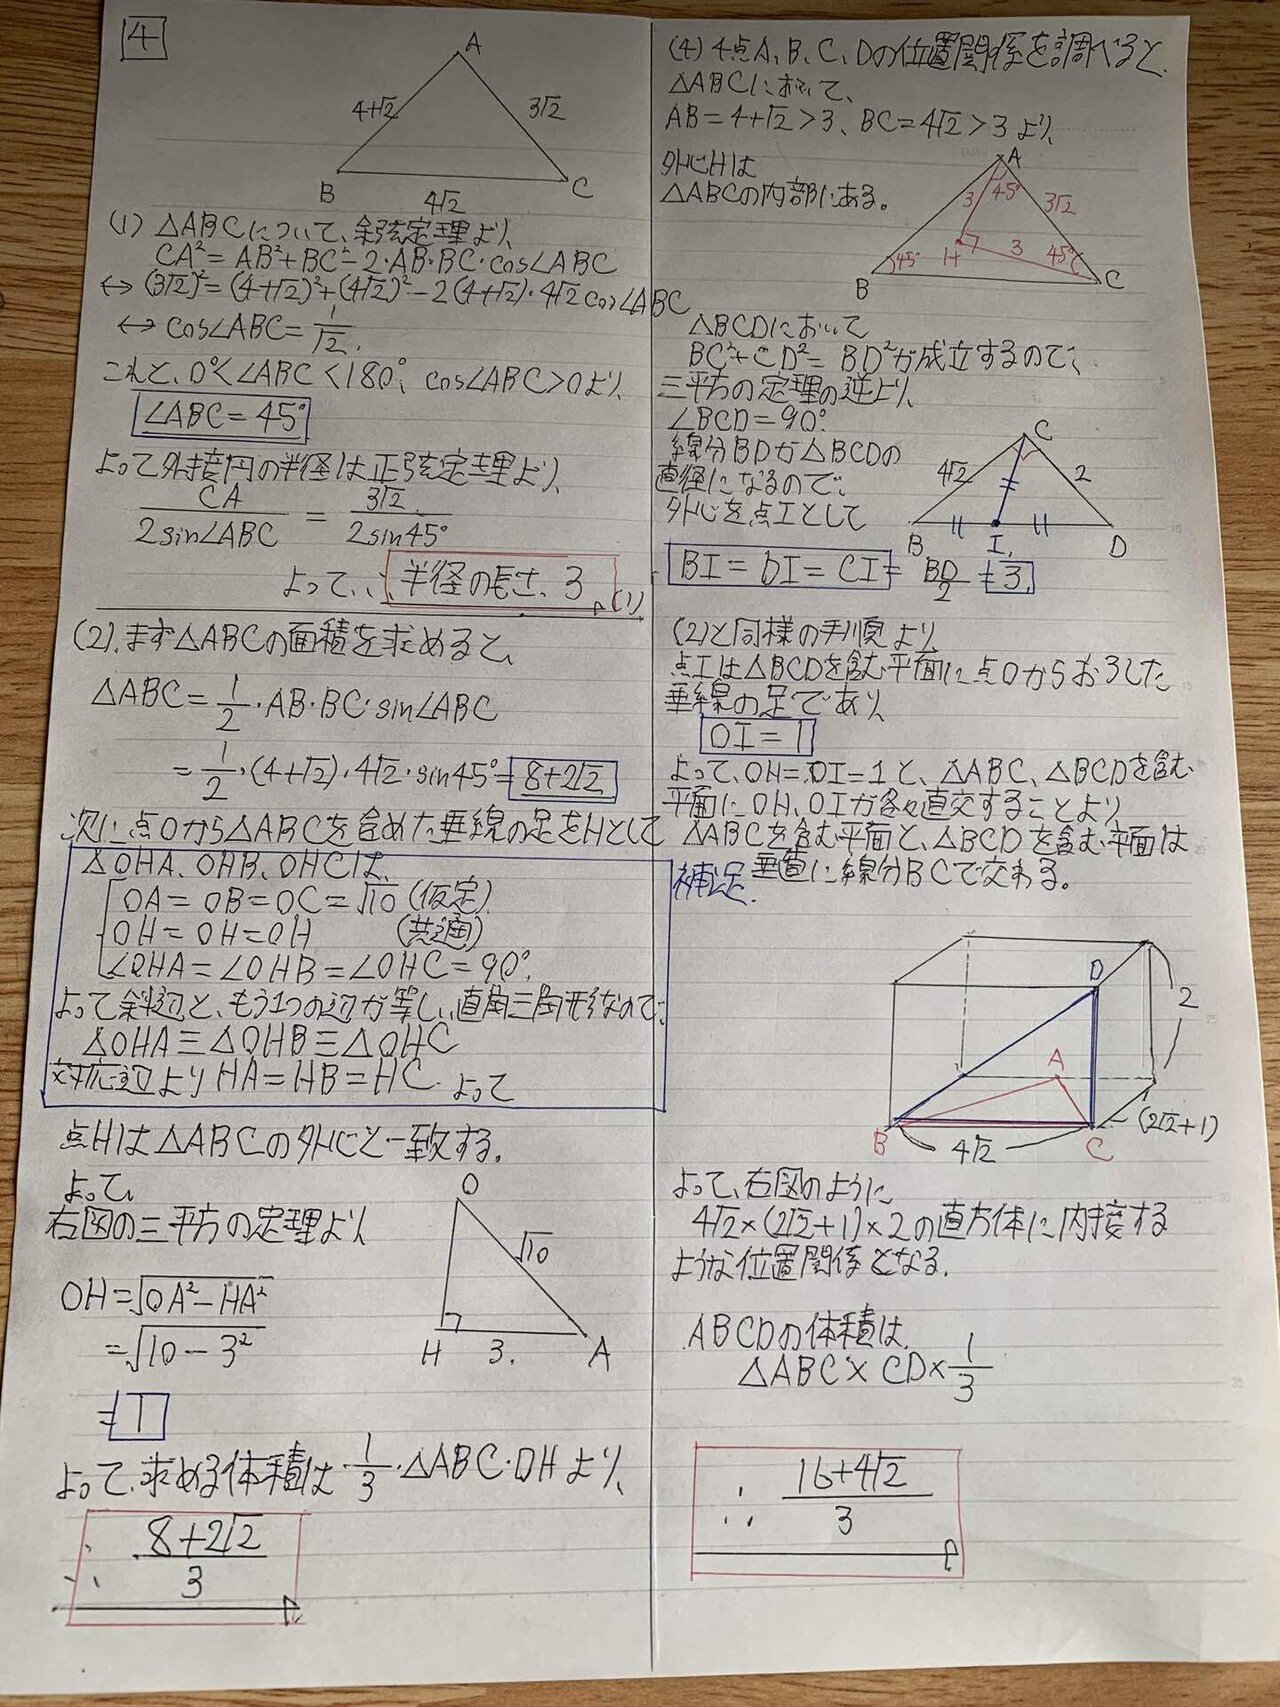 4
A
4+√2
3√2
B
C
4√2
(1) △ABCについて、余弦定理より、
CA²=AB²+BC²-2・AB・BC・cos∠ABC
↔(3√2)²=(4+√2)²+(4√2)²-2(4+√2)・4√2cos∠ABC
↔cos∠ABC=1/√2.
これと、0°<∠ABC<180°、cos∠ABC>0より、
∠ABC=45°
よって外接円の半径は正弦定理より、
CA/2sin∠ABC = 3√2/2sin45°
よって、半径の長さ、3 (1)
(2).まず△ABCの面積を求めると、
△ABC=1/2・AB・BC・sin∠ABC
=1/2・(4+√2)・4√2・sin45°=8+2√2
次に点Oから△ABCを含めた垂線の足をHとして
△OHA、OHB、OHCは、
OA=OB=OC=√10 (仮定)
OH=OH=OH (共通)
∠OHA=∠OHB=∠OHC=90°.
よって斜辺と、もう1つの辺が等しい直角三角形なので、
△OHA≡△OHB≡△OHC
対応辺よりHA=HB=HC. よって
点Hは△ABCの外心と一致する。
よって、
右図の三平方の定理より
O
√10
H
3.
A
OH=√OA²-HA²
=√10-3²
=1
よって、求める体積は 1/3・△ABC・OHより、
∴ 8+2√2/3
(4) 4点A、B、C、Dの位置関係を調べると、
△ABCにおいて、
AB=4+√2>3、BC=4√2>3より、
外心Hは
△ABCの内部にある。
A
45°
3
3√2
45°
H
3
45°
B
C
△BCDにおいて
BC²+CD²=BD²が成立するので、
三平方の定理の逆より、
∠BCD=90°
線分BDが△BCDの
直径になるので、
外心を点Iとして
C
4√2
2
B
I
D
BI=DI=CI=BD/2=3
(2)と同様の手順より
点Iは△BCDを含む平面に点Oからおろした
垂線の足であり、
OI=1
よって、OH=OI=1と、△ABC、△BCDを含む
平面にOH、OIが各々直交することより
△ABCを含む平面と、△BCDを含む平面は
垂直に線分BCで交わる。
補足.
D
2
A
B
C
4√2
(2√2+1)
よって、右図のように
4√2×(2√2+1)×2の直方体に内接する
ような位置関係となる。
ABCDの体積は、
△ABC×CD×1/3
∴ 16+4√2/3